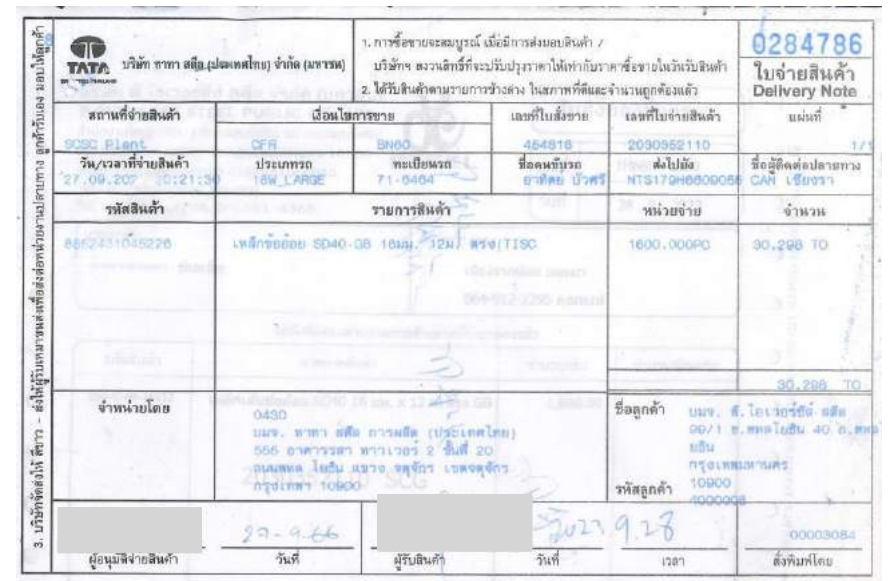 TATA บริษัท ทาทา สตีล (ประเทศไทย) จำกัด (มหาชน)
1. การซื้อขายจะสมบูรณ์ เมื่อมีการส่งมอบสินค้า /
บริษัทฯ สงวนสิทธิ์ที่จะปรับปรุงราคาให้เท่ากับราคาซื้อขายในวันรับสินค้า
2. ได้รับสินค้าตามรายการข้างล่าง ในสภาพที่ดีและจำนวนถูกต้องแล้ว
0284786
ใบจ่ายสินค้า
Delivery Note
สถานที่จ่ายสินค้า เงื่อนไขการขาย เลขที่ใบสั่งขาย เลขที่ใบจ่ายสินค้า แผ่นที่
SCSC Plant CFR BN60 454816 2030952110 1/1
วัน/เวลาที่จ่ายสินค้า ประเภทรถ ทะเบียนรถ ชื่อคนขับรถ ส่งไปยัง ชื่อผู้ติดต่อปลายทาง
27.09.202 20:21:30 18W_LARGE 71-6464 อาทิตย์ บัวศรี CAN เชียงรา
รหัสสินค้า รายการสินค้า หน่วยจ่าย จำนวน
เหล็กข้ออ้อย SD40-GB 16มม. 12ม. ตรง(TISC 1600.000PC 30.298 TO
30.298 TO
จำหน่ายโดย
0430
บมจ. ทาทา สตีล การผลิต (ประเทศไทย)
555 อาคารรสา ทาวเวอร์ 2 ชั้นที่ 20
ถนนพหล โยธิน แขวง จตุจักร เขตจตุจักร
กรุงเทพฯ 10900
ชื่อลูกค้า บมจ.
99/1 ซ.พหลโยธิน 40 ถ.พหล
ยธิน
กรุงเทพมหานคร
10900
รหัสลูกค้า
27-9.66
2023 9.28
00003084
ผู้อนุมัติจ่ายสินค้า วันที่ ผู้รับสินค้า วันที่ เวลา สั่งพิมพ์โดย